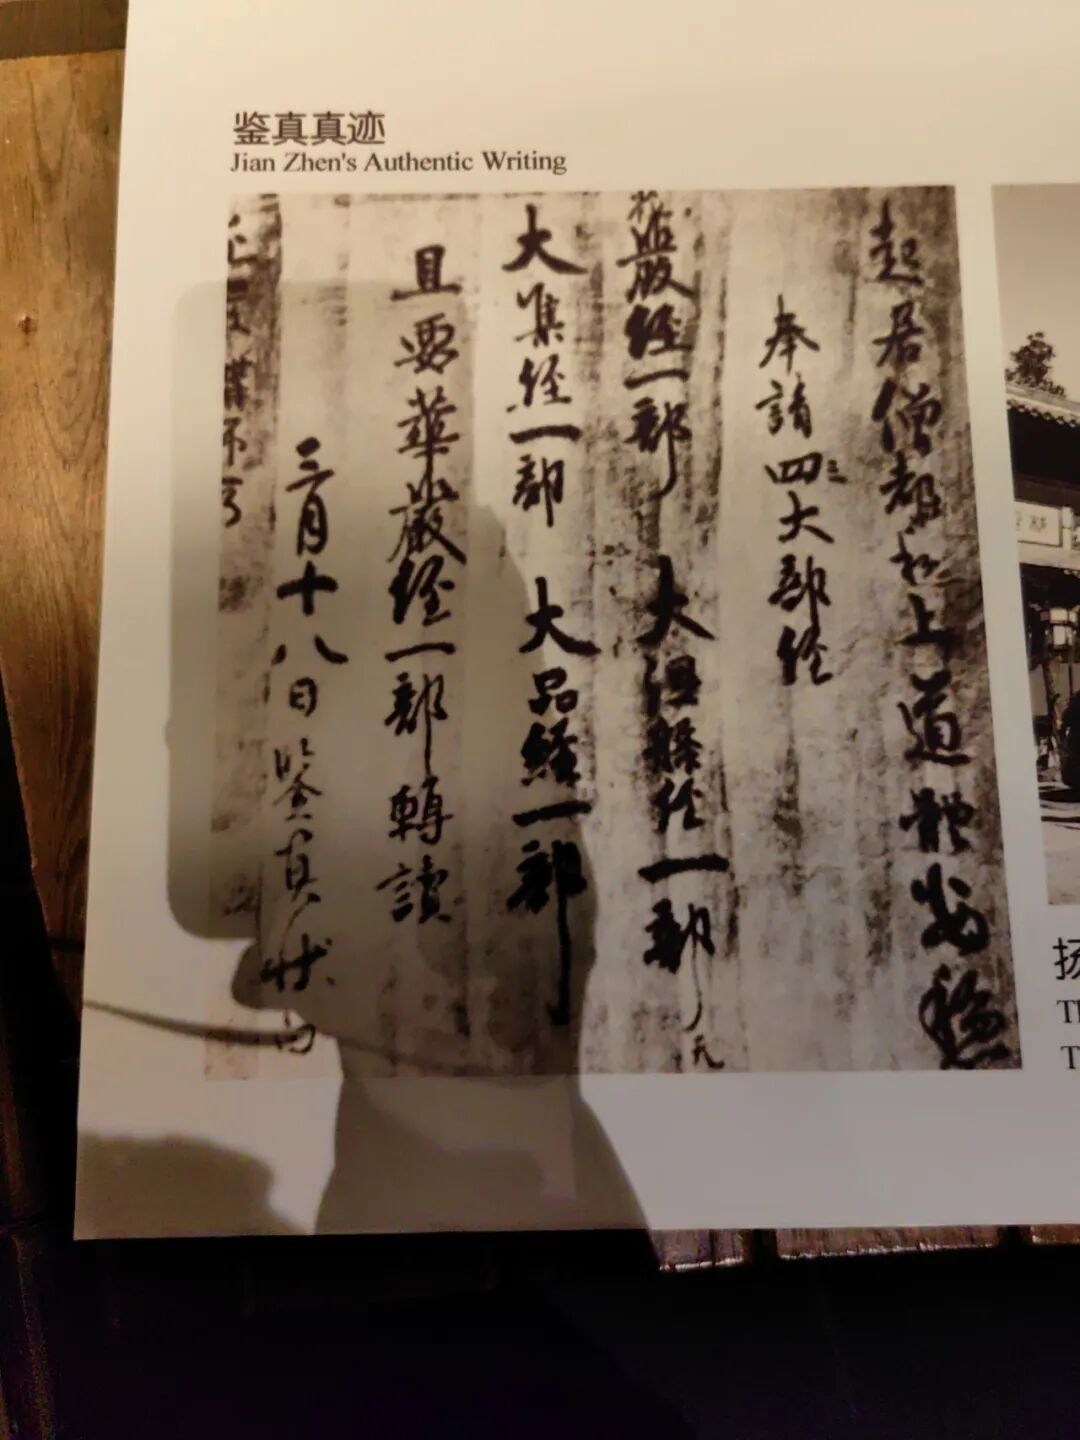 鉴真真迹
Jian Zhen's Authentic Writing
起居僧都和上道體安穩
奉請四大部経
嚴経一部 大涅槃経一部
大集経一部 大品経一部
且要華嚴経一部轉讀
三月十八日鑒真状白
扬
Th
T